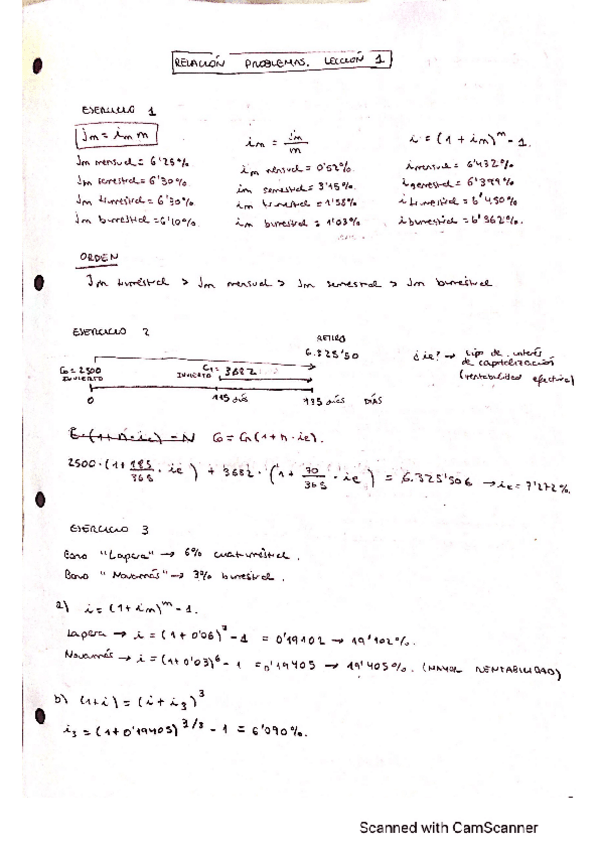 RELACIÓN PROBLEMAS. LECCIÓN 1
EJERCICIO 1
Jm = im m
im = Jm / m
i = (1 + im)^m - 1.
Jm mensual = 6'25%
im mensual = 0'52%
i mensual = 6'432%
Jm semestral = 6'30%
im semestral = 3'15%
i semestral = 6'399%
Jm trimestral = 6'30%
im trimestral = 1'58%
i trimestral = 6'450%
Jm bimestral = 6'10%.
im bimestral = 1'03%
i bimestral = 6'362%.
ORDEN
Jm trimestral > Jm mensual > Jm semestral > Jm bimestral
EJERCICIO 2
RETIRO
6.325'50
C0 = 2500
INVIERTO
C1 = 3682
INVIERTO
0
115 días
185 días
DÍAS
¿ie? → tipo de interés
de capitalización
(rentabilidad efectiva)
2500·(1+ 185/365 · ie) + 3682·(1+ 70/365 · ie) = 6.325'506 → ie = 7'272%.
EJERCICIO 3
Bono "Lapera" → 6% cuatrimestral.
Bono "Novamás" → 3% bimestral.
a) i = (1+im)^m - 1.
Lapera → i = (1+0'06)^3 - 1 = 0'19102 → 19'102%.
Novamás → i = (1+0'03)^6 - 1 = 0'19405 → 19'405%. (MAYOR RENTABILIDAD)
b) (1+i) = (i+i3)^3
i3 = (1+0'19405)^3/3 - 1 = 6'090%.
Scanned with CamScanner